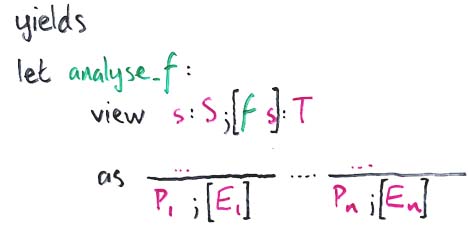 yields
let analyse_f:
view s: S; [f s]: T
as ... .... ...
P₁ ; [E₁] Pₙ ; [Eₙ]